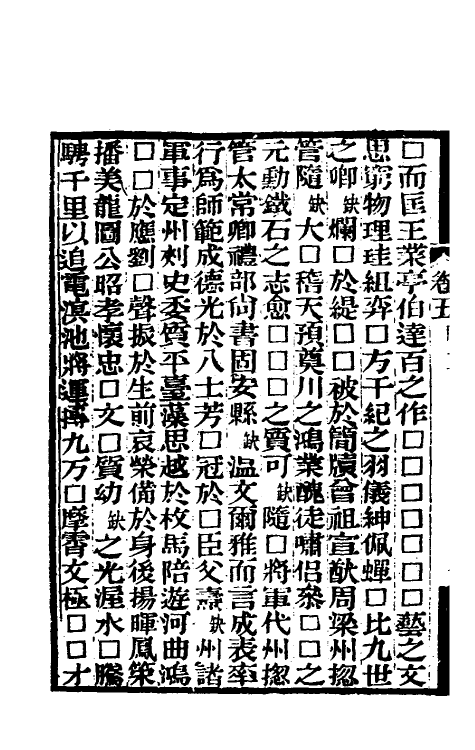 □而匡王業亭伯達百之作□□□□□□□□藝之文
思窮物理珪組弈□方千紀之羽儀紳佩蟬□比九世
之卿缺爛□於緹□□被於簡牘曾祖宣猷周梁州揔
管隨缺大□稽天預奠川之鴻業醜徒嘯侶叅□□之
元勳鐵石之志愈□□□之質可缺隨□將軍代州揔
管太常卿禮部尙書固安縣缺温文爾雅而言成表率
行爲師範成德光於八士芳□冠於□臣父缺州諸
軍事定州刺史委質平臺藻思越於枚馬陪遊河曲鴻
□□於應劉□聲振於生前哀榮備於身後揚暉鳳策
播美龍圖公昭孝懷忠□文□質幼缺之光渥水□騰
騁千里以追電溟池將運摶九万□摩霄文極□□才
卷五